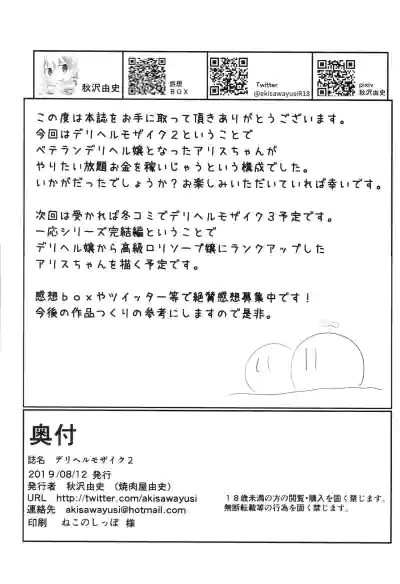 秋沢由史
感想
BOX
Twitter
@akisawayusiR18
pixiv
秋沢由史
この度は本誌をお手に取って頂きありがとうございます。
今回はデリヘルモザイク2ということで
ベテランデリヘル嬢となったアリスちゃんが
やりたい放題お金を稼いじゃうという構成でした。
いかがだったでしょうか?お楽しみいただいていれば幸いです。
次回は受かれば冬コミでデリヘルモザイク3予定です。
一応シリーズ完結編ということで
デリヘル嬢から高級ロリソープ嬢にランクアップした
アリスちゃんを描く予定です。
感想boxやツイッター等で絶賛感想募集中です!
今後の作品つくりの参考にしますので是非。
奥付
誌名 デリヘルモザイク2
2019/08/12 発行
発行者 秋沢由史 (焼肉屋由史)
URL http://twitter.com/akisawayusi
連絡先 akisawayusi@hotmail.com
印刷 ねこのしっぽ 様
18歳未満の方の閲覧・購入を固く禁じます。
無断転載等の行為を固く禁じます。